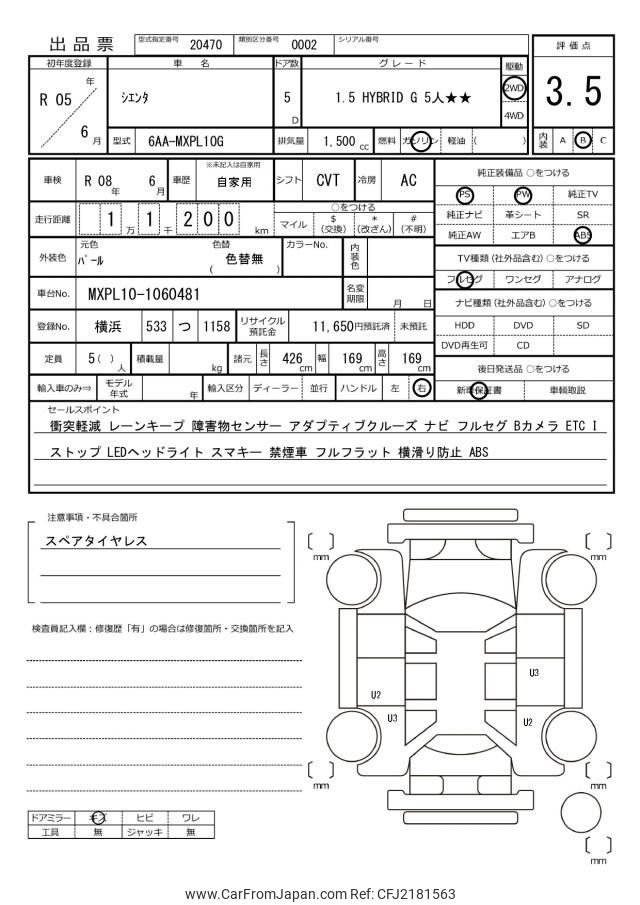 出品票 型式指定番号 20470 類別区分番号 0002 シリアル番号 評価点
初年度登録 車名 ドア数 グレード 駆動
R 05 年 6 月 シエンタ 5 D 1.5 HYBRID G 5人★★ 2WD 4WD 3.5
型式 6AA-MXPL10G 排気量 1,500 cc 燃料 ガソリン 軽油 ( ) 内装 A B C
車検 R 08 年 6 月 車歴 ※未記入は自家用 自家用 シフト CVT 冷房 AC
純正装備品 ○をつける
PS PW 純正TV
純正ナビ 革シート SR
純正AW エアB ABS
走行距離 1 万 1 千 2 0 0 km ○をつける
マイル $ (交換) * (改ざん) # (不明)
外装色 元色 パール 色替 ( 色替無 ) カラーNo. 内装色
TV種類 (社外品含む) ○をつける
フルセグ ワンセグ アナログ
車台No. MXPL10-1060481 名変期限 月 日
ナビ種類 (社外品含む) ○をつける
HDD DVD SD
DVD再生可 CD
登録No. 横浜 533 つ 1158 リサイクル預託金 11,650円預託済 未預託
定員 5 ( ) 人 積載量 kg 諸元 長さ 426 cm 幅 169 cm 高さ 169 cm
後日発送品 ○をつける
新車保証書 車輌取説
輸入車のみ⇒ モデル年式 年 輸入区分 ディーラー 並行 ハンドル 左 右
セールスポイント
衝突軽減 レーンキープ 障害物センサー アダプティブクルーズ ナビ フルセグ Bカメラ ETC I
ストップ LEDヘッドライト スマキー 禁煙車 フルフラット 横滑り防止 ABS
注意事項・不具合箇所
スペアタイヤレス
検査員記入欄：修復歴「有」の場合は修復箇所・交換箇所を記入
mm mm
U3
U2
U3 U2
mm mm
mm
ドアミラー キズ ヒビ ワレ
工具 無 ジャッキ 無
www.CarFromJapan.com Ref: CFJ2181563